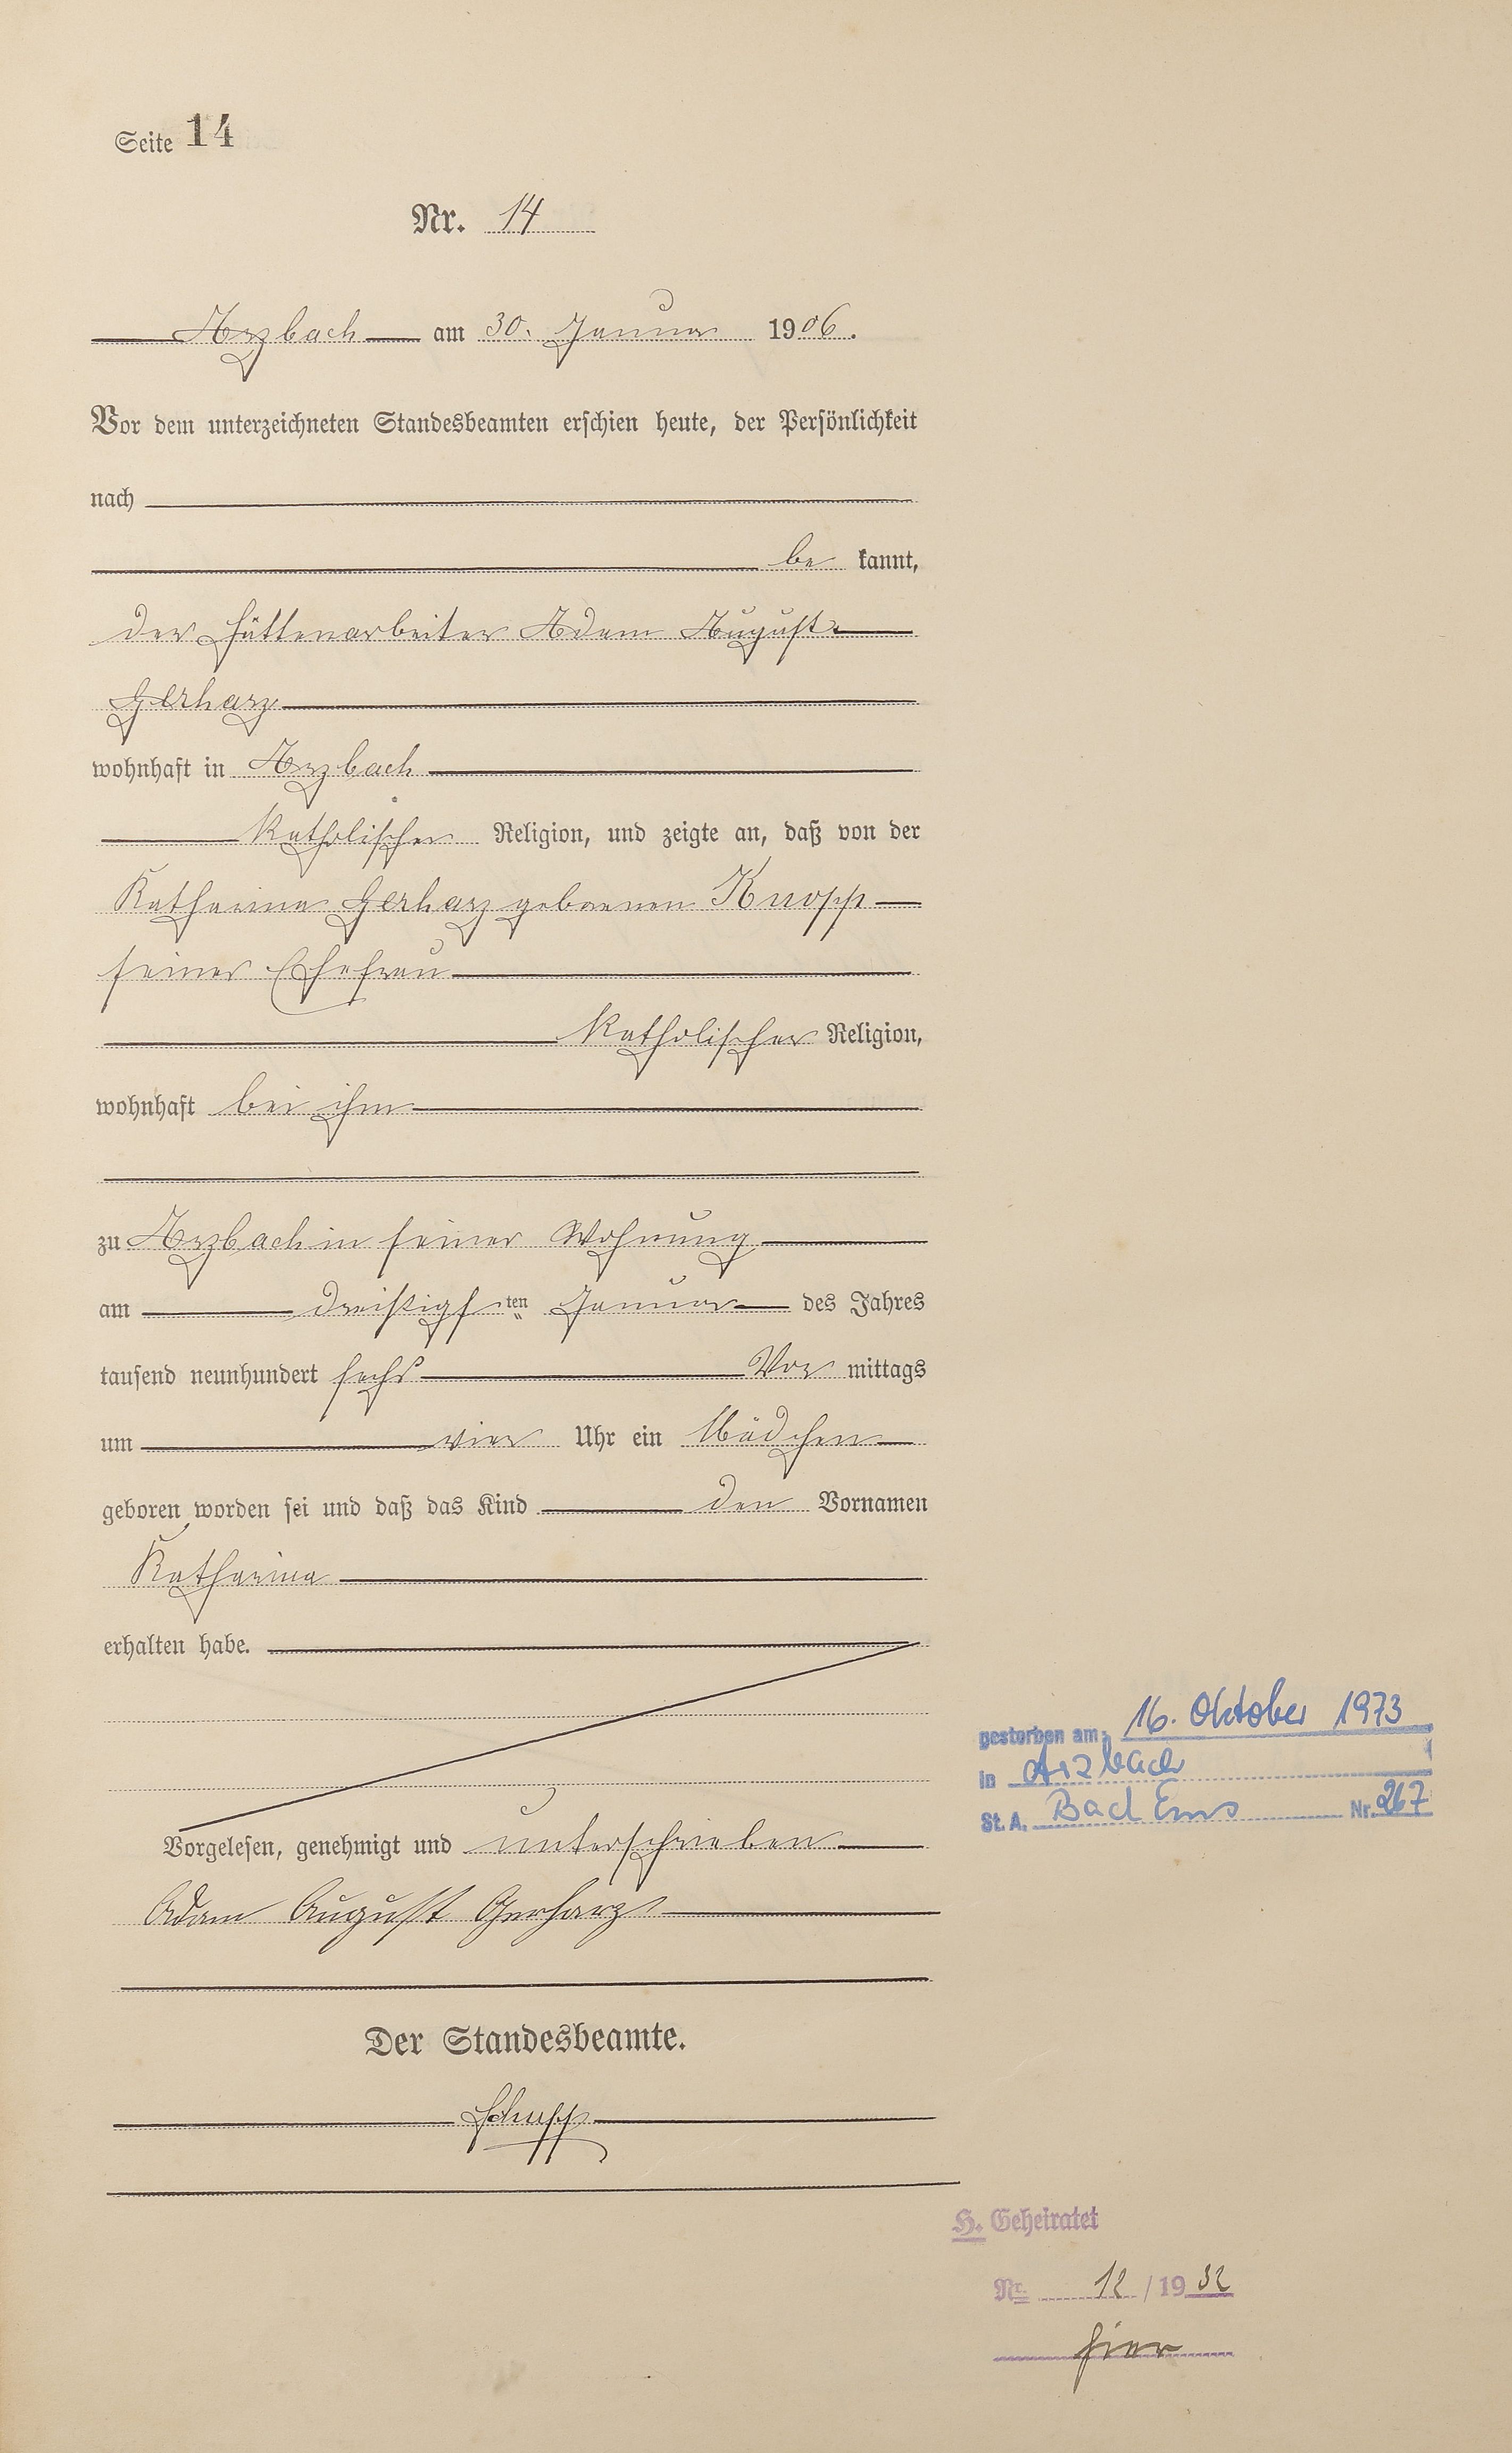 Seite 14
Nr. 14
Arzbach am 30. Januar 1906.
Vor dem unterzeichneten Standesbeamten erschien heute, der Persönlichkeit
nach
be kannt,
der Hüttenarbeiter Adam August
Gerharz
wohnhaft in Arzbach
katholischer Religion, und zeigte an, daß von der
Katharina Gerharz geborenen Knopp
seiner Ehefrau
katholischer Religion,
wohnhaft bei ihm
zu Arzbach in seiner Wohnung
am dreißigsten Januar des Jahres
tausend neunhundert sechs Vor mittags
um vier Uhr ein Mädchen
geboren worden sei und daß das Kind den Vornamen
Katharina
erhalten habe.
Vorgelesen, genehmigt und unterschrieben
Adam August Gerharz
Der Standesbeamte.
Schupp
gestorben am: 16. Oktober 1973
in Arzbach
St. A. Bad Ems Nr. 267
H. Geheiratet
Nr. 12 / 19 32
hier